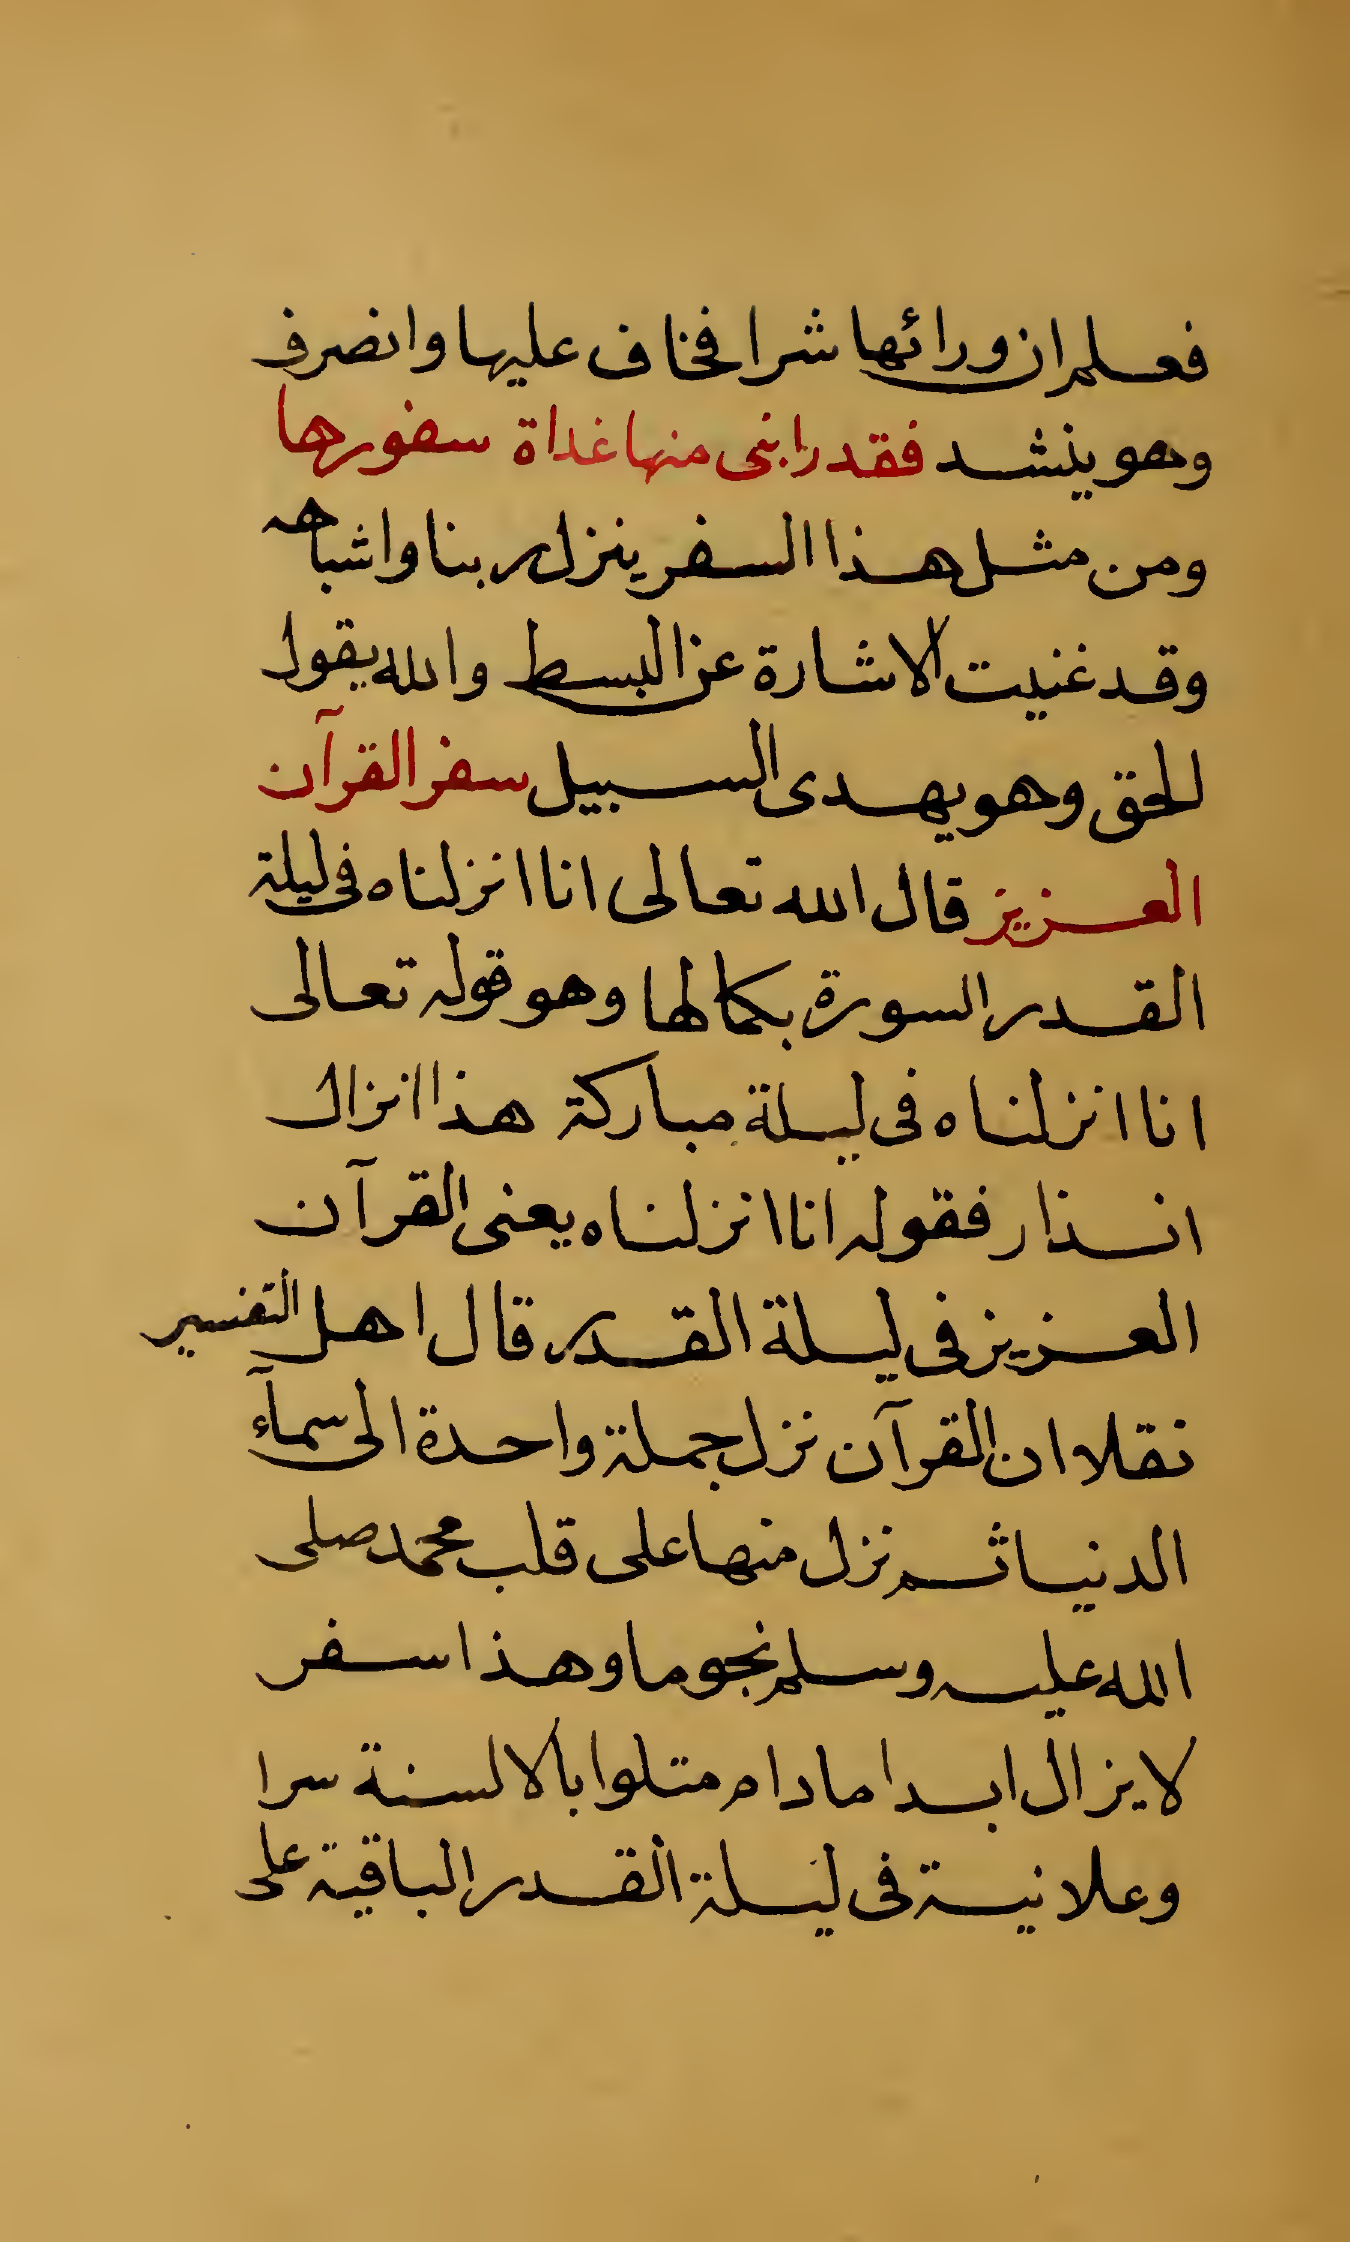 فعلم ان ورائها شرا فخاف عليها وانصرف
وهو ينشد فقد رابنى منها غداة سفورها
ومن مثل هذا السفر ينزل ربنا واشباهه
وقد غنيت الاشارة عن البسط والله يقول
الحق وهو يهدى السبيل سفر القرآن
العزيز قال الله تعالى انا انزلناه فى ليلة
القدر السورة بكمالها وهو قوله تعالى
انا انزلناه فى ليلة مباركة هذا انزال
انذار فقوله انا انزلناه يعنى القرآن
العزيز فى ليلة القدر قال اهل التفسير
نقلا ان القرآن نزل جملة واحدة الى سمآء
الدنيا ثم نزل منها على قلب محمد صلى
الله عليه وسلم نجوما وهذا سفر
لا يزال ابدا ما دام متلوا بالالسنة سرا
وعلانية فى ليلة القدر الباقية على